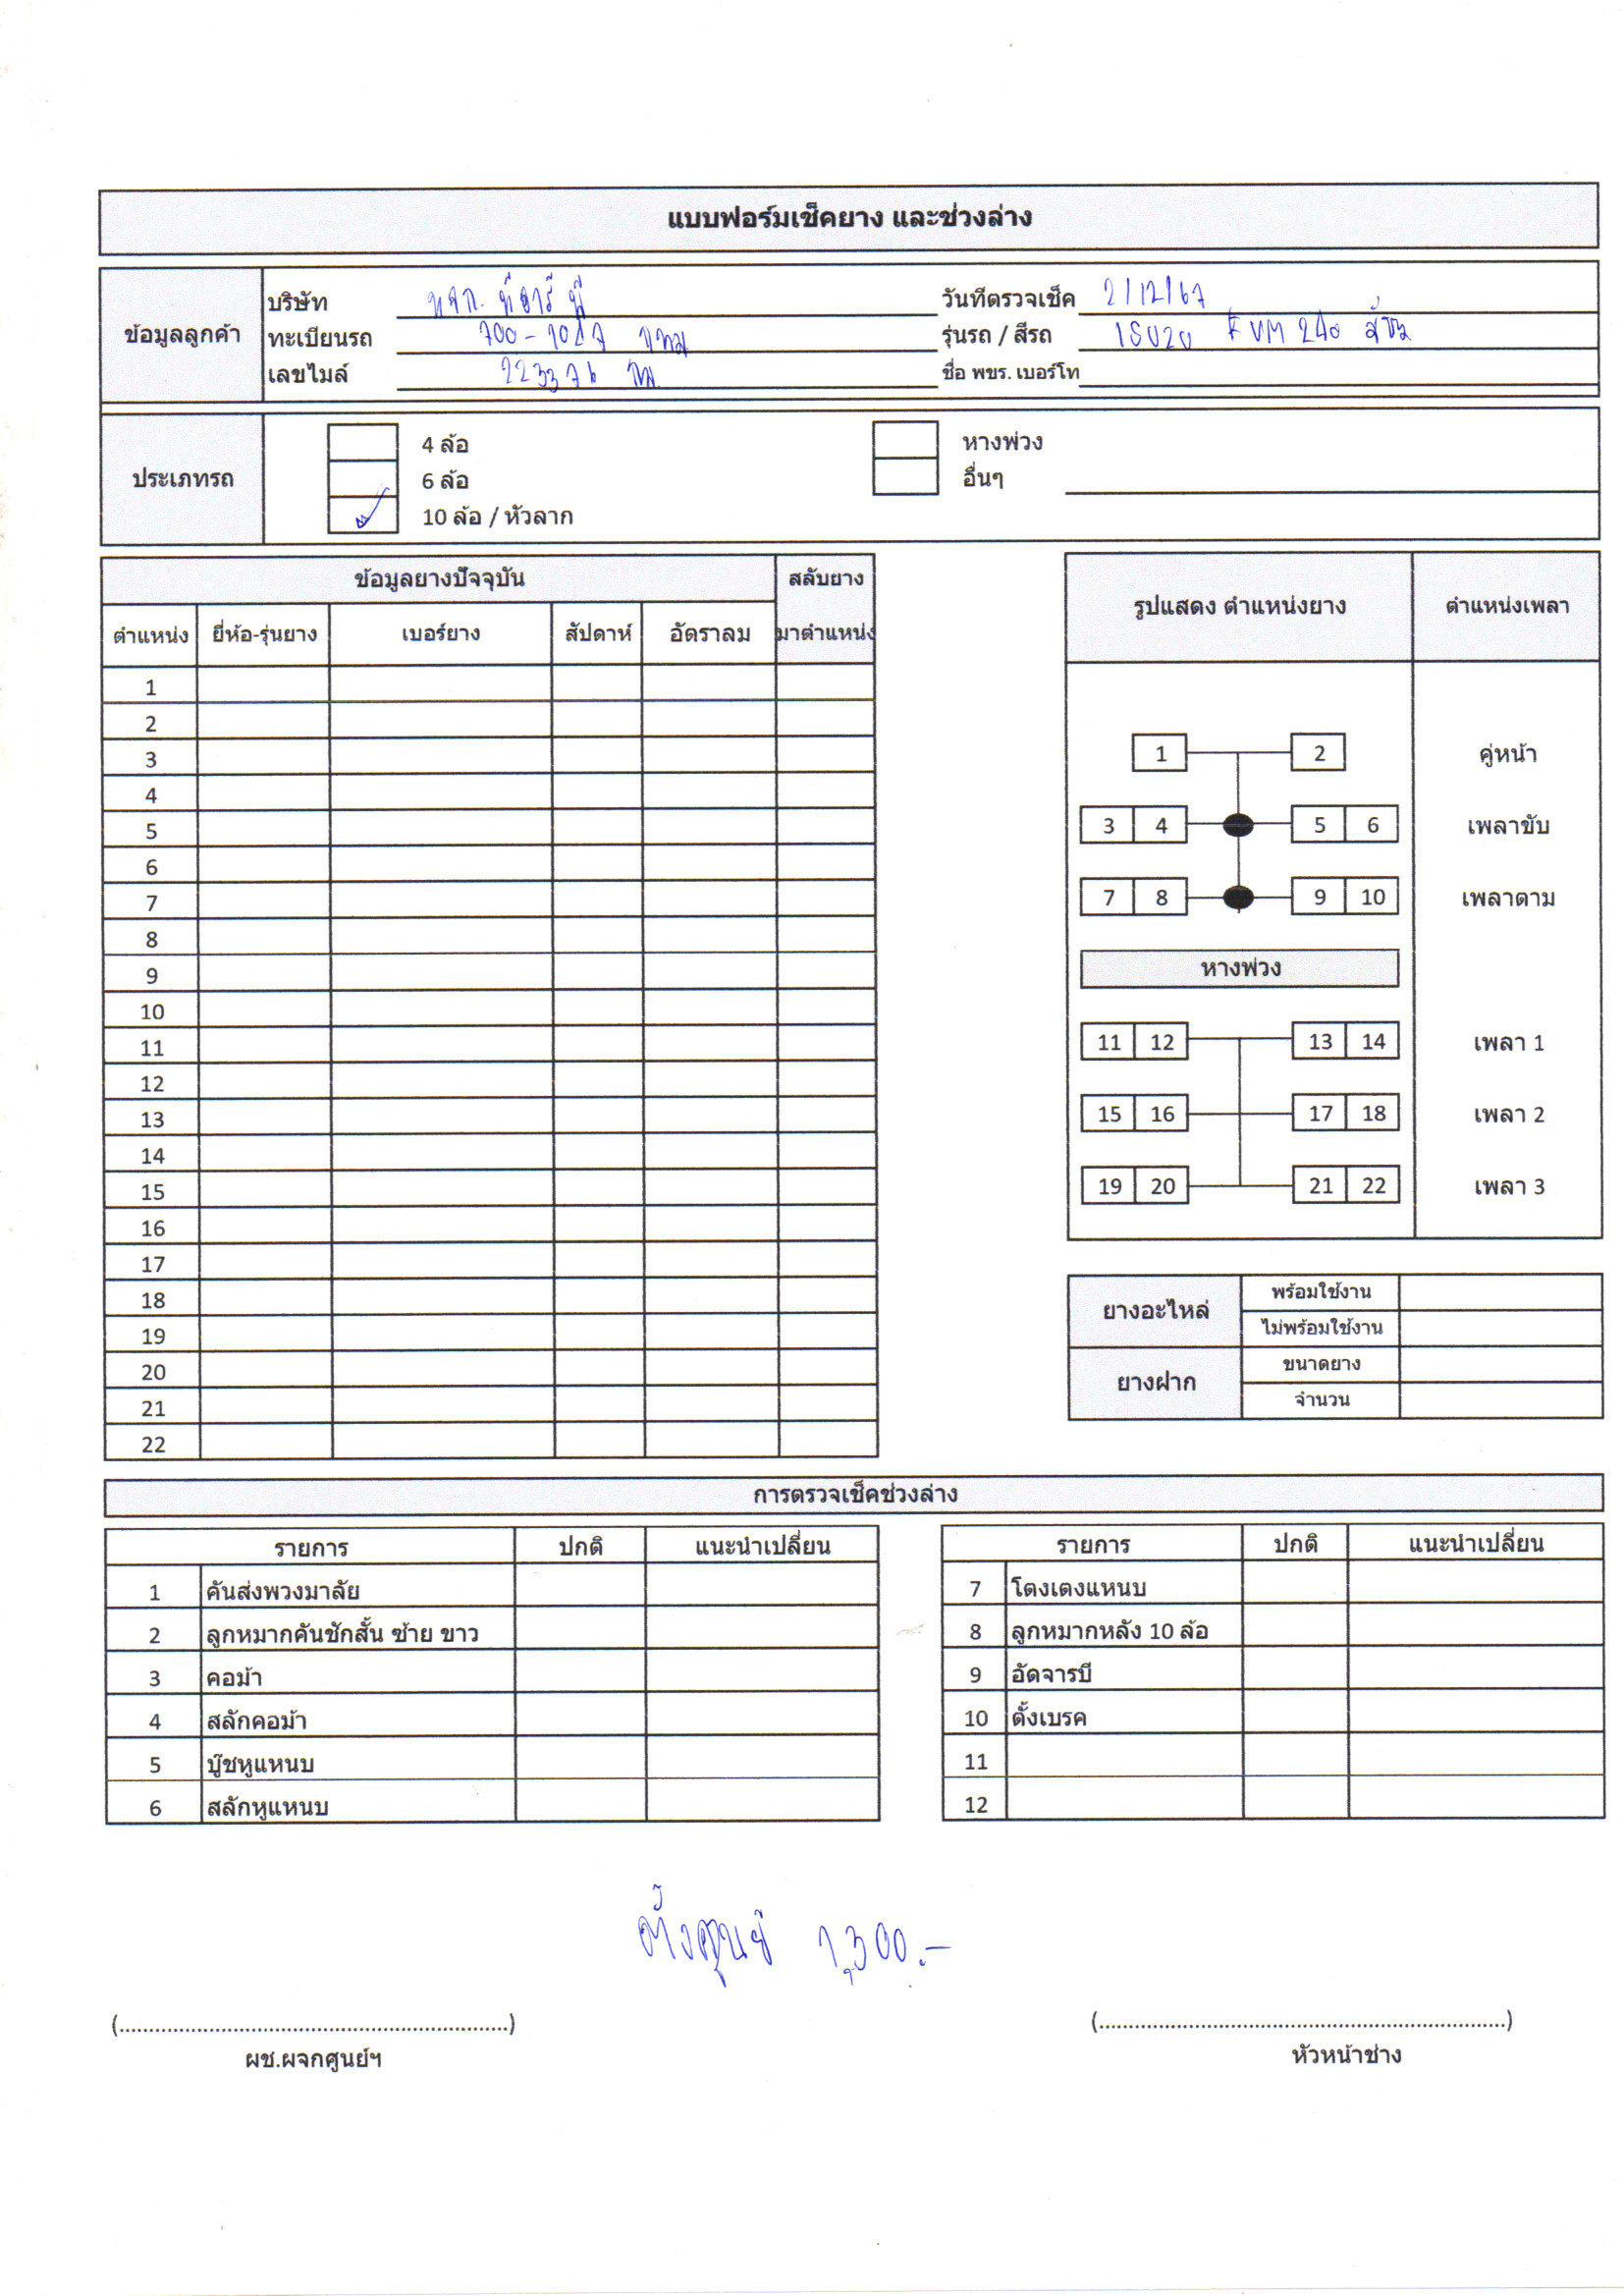 แบบฟอร์มเช็คยาง และช่วงล่าง
ข้อมูลลูกค้า
บริษัท หจก. ทีอาร์ พี
วันที่ตรวจเช็ค 2/12/67
ทะเบียนรถ กทม
รุ่นรถ / สีรถ ISUZU 240
เลขไมล์ 223376 กม.
ชื่อ พขร. เบอร์โท
ประเภทรถ
4 ล้อ
6 ล้อ
✓ 10 ล้อ / หัวลาก
หางพ่วง
อื่นๆ
ข้อมูลยางปัจจุบัน สลับยาง
ตำแหน่ง ยี่ห้อ-รุ่นยาง เบอร์ยาง สัปดาห์ อัตราลม มาตำแหน่ง
1
2
3
4
5
6
7
8
9
10
11
12
13
14
15
16
17
18
19
20
21
22
รูปแสดง ตำแหน่งยาง ตำแหน่งเพลา
1 2 คู่หน้า
3 4 5 6 เพลาขับ
7 8 9 10 เพลาตาม
หางพ่วง
11 12 13 14 เพลา 1
15 16 17 18 เพลา 2
19 20 21 22 เพลา 3
ยางอะไหล่ พร้อมใช้งาน
ไม่พร้อมใช้งาน
ยางฝาก ขนาดยาง
จำนวน
การตรวจเช็คช่วงล่าง
รายการ ปกติ แนะนำเปลี่ยน
1 คันส่งพวงมาลัย
2 ลูกหมากคันชักสั้น ซ้าย ขาว
3 คอม้า
4 สลักคอม้า
5 บู๊ชหูแหนบ
6 สลักหูแหนบ
รายการ ปกติ แนะนำเปลี่ยน
7 โตงเตงแหนบ
8 ลูกหมากหลัง 10 ล้อ
9 อัดจารบี
10 ตั้งเบรค
11
12
ตั้งศูนย์ 1,300.-
(..................................................................)
ผช.ผจกศูนย์ฯ
(..................................................................)
หัวหน้าช่าง